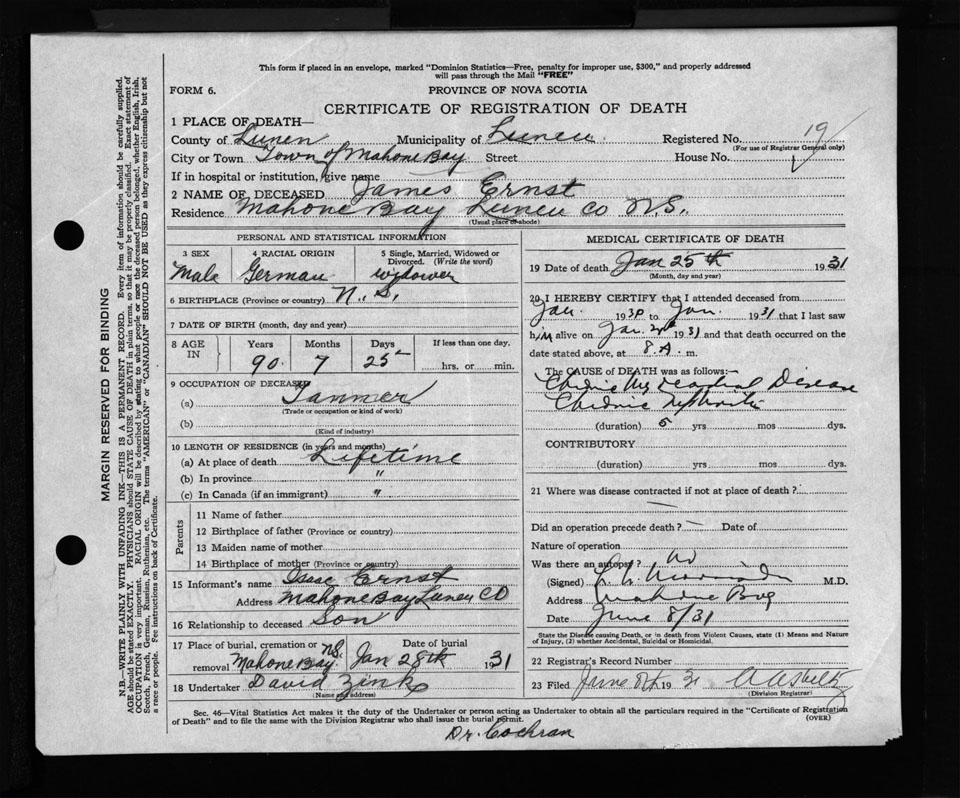 This form if placed in an envelope, marked "Dominion Statistics—Free, penalty for improper use, $300," and properly addressed
will pass through the Mail "FREE"
FORM 6.
PROVINCE OF NOVA SCOTIA
CERTIFICATE OF REGISTRATION OF DEATH
1 PLACE OF DEATH—
County of Lunen Municipality of Lunen Registered No. 19
(For use of Registrar General only)
City or Town Town of Mahone Bay Street House No.
If in hospital or institution, give name
2 NAME OF DECEASED James Ernst
Residence Mahone Bay Lunen Co N.S.
(Usual place of abode)
PERSONAL AND STATISTICAL INFORMATION
3 SEX 4 RACIAL ORIGIN 5 Single, Married, Widowed or
Divorced. (Write the word)
Male German widower
6 BIRTHPLACE (Province or country) N.S.
7 DATE OF BIRTH (month, day and year)
8 AGE IN Years Months Days If less than one day.
90 7 25 hrs. or min.
9 OCCUPATION OF DECEASED
(a) Tanner
(Trade or occupation or kind of work)
(b)
(Kind of industry)
10 LENGTH OF RESIDENCE (in years and months)
(a) At place of death Lifetime
(b) In province "
(c) In Canada (if an immigrant) "
Parents
11 Name of father
12 Birthplace of father (Province or country)
13 Maiden name of mother
14 Birthplace of mother (Province or country)
15 Informant's name Isaac Ernst
Address Mahone Bay Lunen CO
16 Relationship to deceased Son
17 Place of burial, cremation or Date of burial
removal Mahone Bay N.S. Jan 28th 1931
18 Undertaker David Zink
Name and address)
MEDICAL CERTIFICATE OF DEATH
19 Date of death Jan 25th 1931
(Month, day and year)
20 I HEREBY CERTIFY that I attended deceased from
Jan. 1930 to Jan. 1931 that I last saw
him alive on Jan. 1931 and that death occurred on the
date stated above, at 8.A. m.
The CAUSE of DEATH was as follows:
Chronic Myocardial Disease
Chronic Nephritis
(duration) 5 yrs mos dys.
CONTRIBUTORY
(duration) yrs mos dys.
21 Where was disease contracted if not at place of death?
Did an operation precede death? — Date of
Nature of operation
Was there an autopsy? No
(Signed) M.D.
Address Mahone Bay
Date June 8/31
State the Disease causing Death, or in death from Violent Causes, state (1) Means and Nature
of Injury, (2) whether Accidental, Suicidal or Homicidal.
22 Registrar's Record Number
23 Filed June 8th 1931
(Division Registrar)
Sec. 46—Vital Statistics Act makes it the duty of the Undertaker or person acting as Undertaker to obtain all the particulars required in the "Certificate of Registration
of Death" and to file the same with the Division Registrar who shall issue the burial permit.
(OVER)
Dr. Cochran
MARGIN RESERVED FOR BINDING
N.B.—WRITE PLAINLY WITH UNFADING INK—THIS IS A PERMANENT RECORD. Every item of information should be carefully supplied.
AGE should be stated EXACTLY. PHYSICIANS should STATE CAUSE OF DEATH in plain terms, so that it may be properly classified. Exact statement of
OCCUPATION is very important. RACIAL ORIGIN will be described by stating to what people or race the deceased person belonged, whether English, Irish,
Scotch, French, German, Russian, Ruthenian, etc. The terms "AMERICAN" or "CANADIAN" SHOULD NOT BE USED as they express citizenship but not
a race or people. See instructions on back of Certificate.